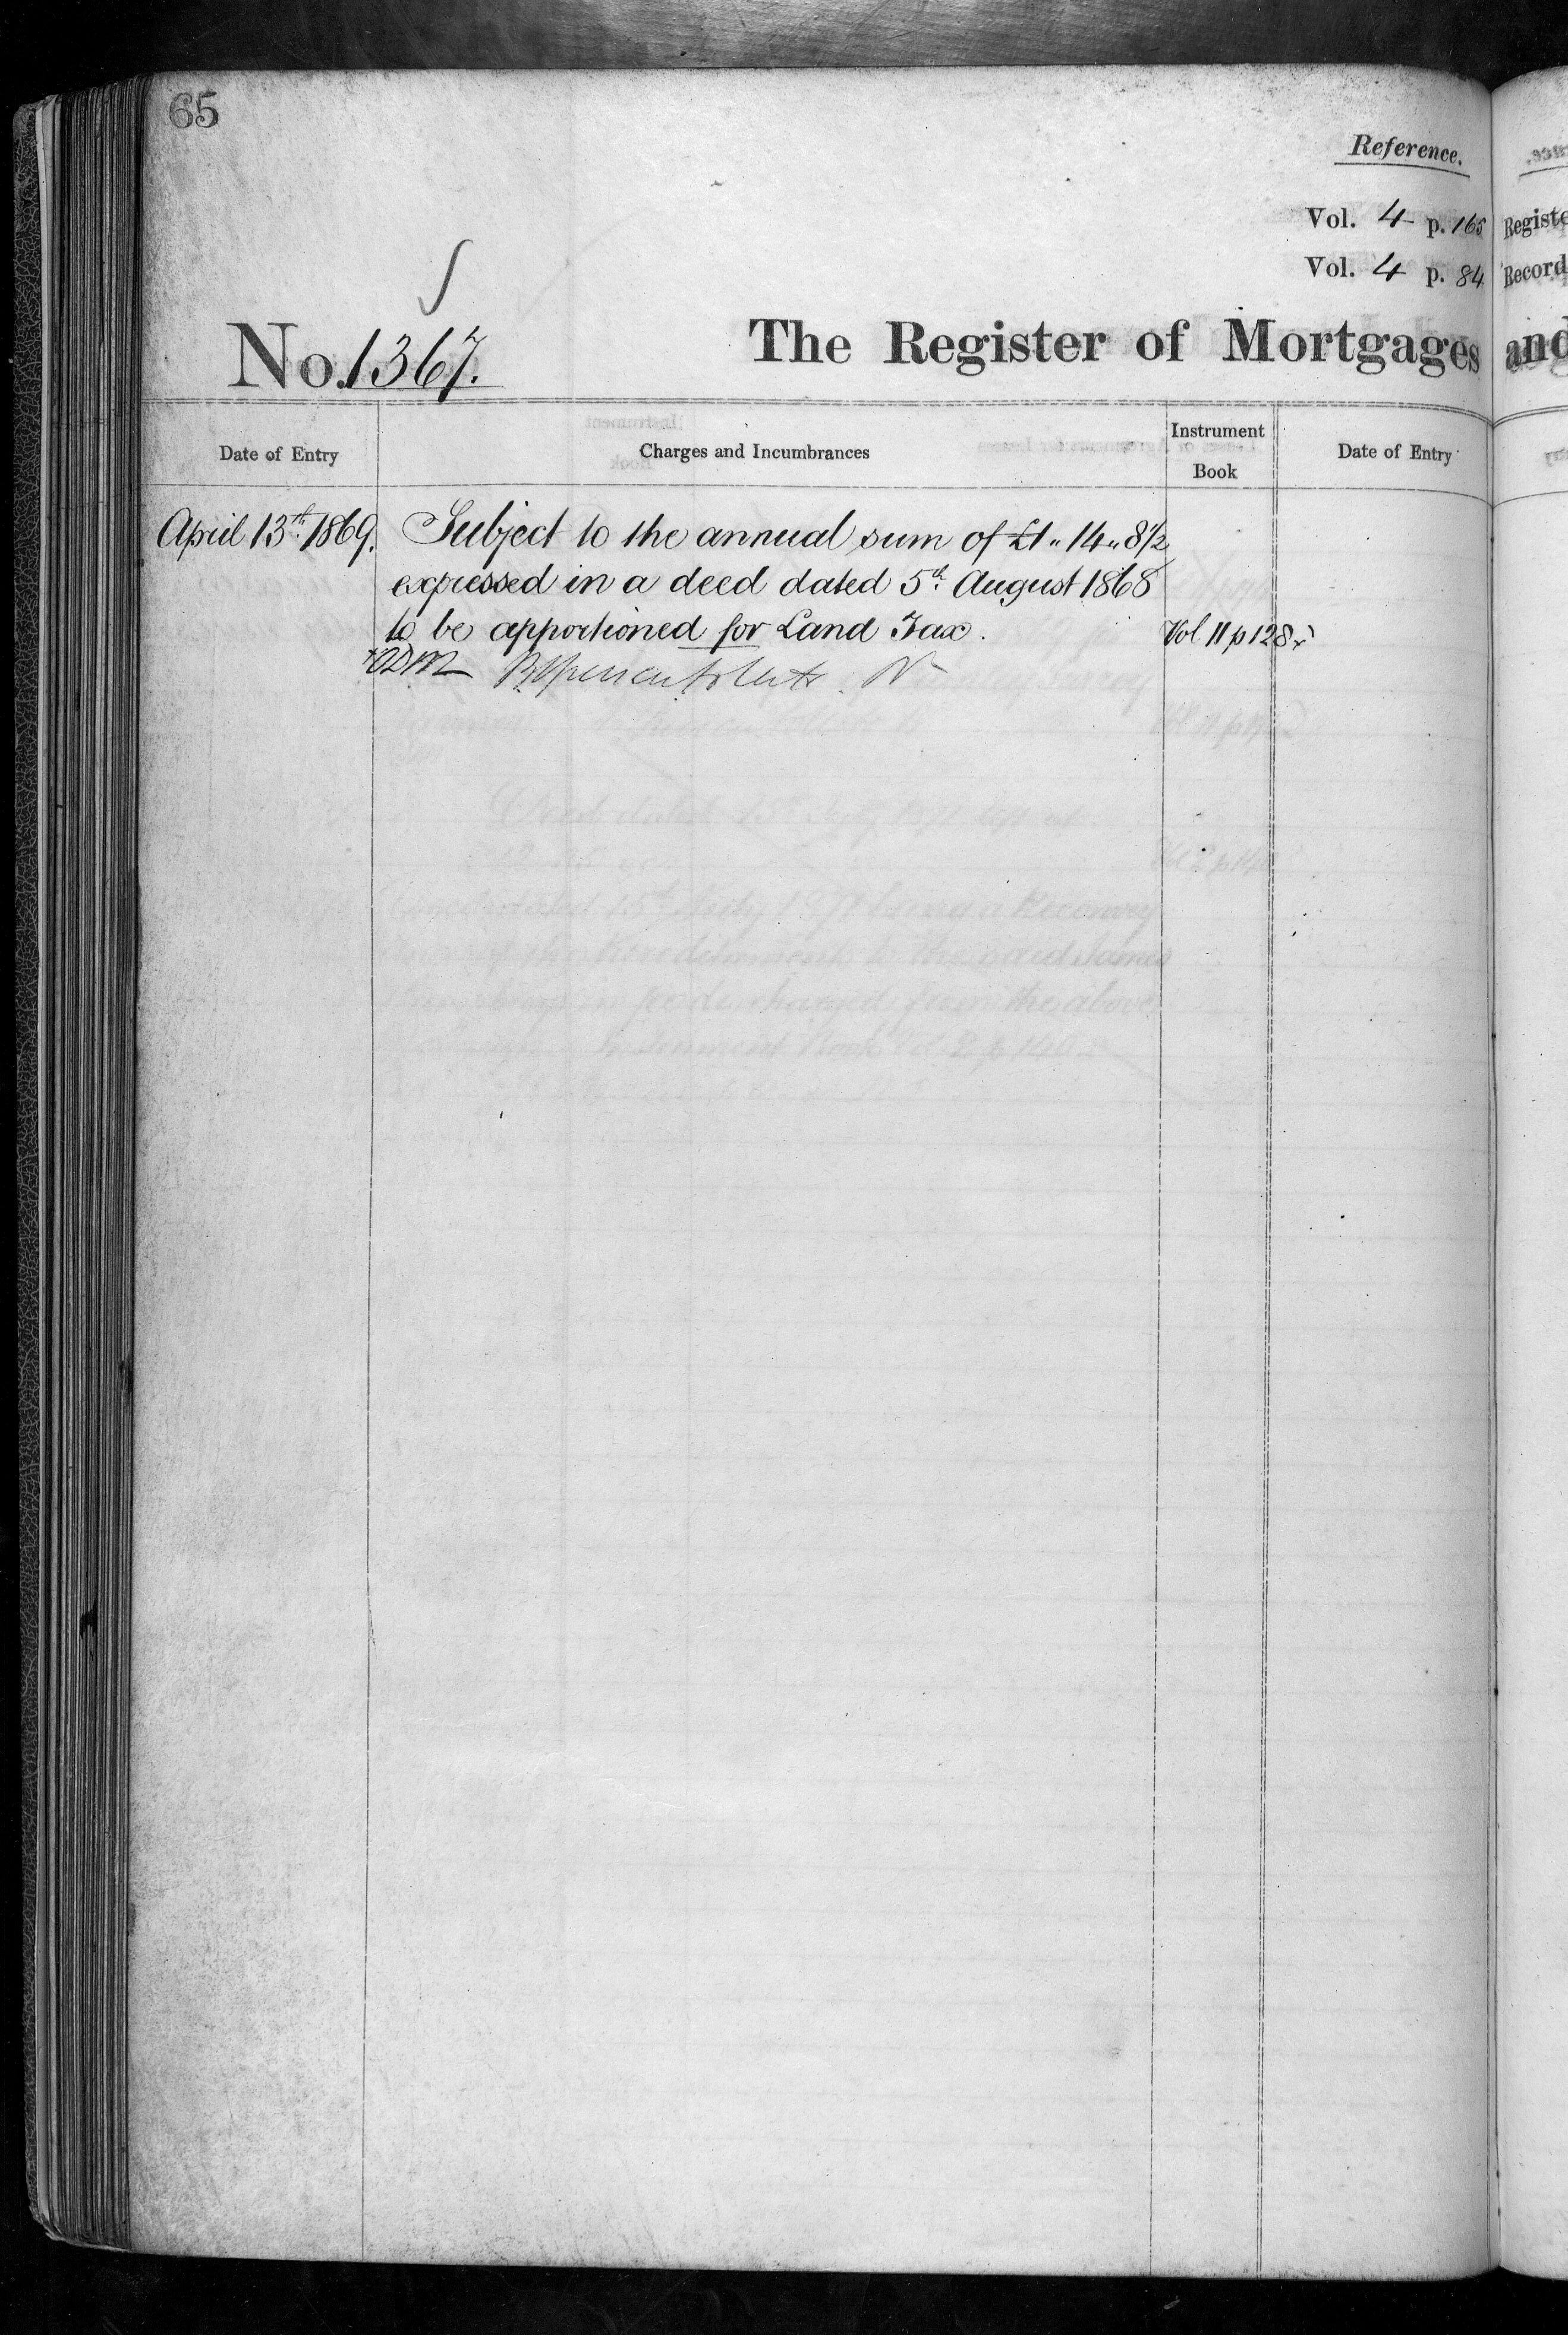 65
Reference.
Vol. 4 p. 165 Registe
Vol. 4 p. 84 Record
No. 1367. The Register of Mortgages and
Date of Entry
Charges and Incumbrances
Instrument
Book
Date of Entry
April 13th 1869. Subject to the annual sum of £1 " 14 " 8½
expressed in a deed dated 5th August 1868
to be apportioned for Land Tax. Vol 11 p 128